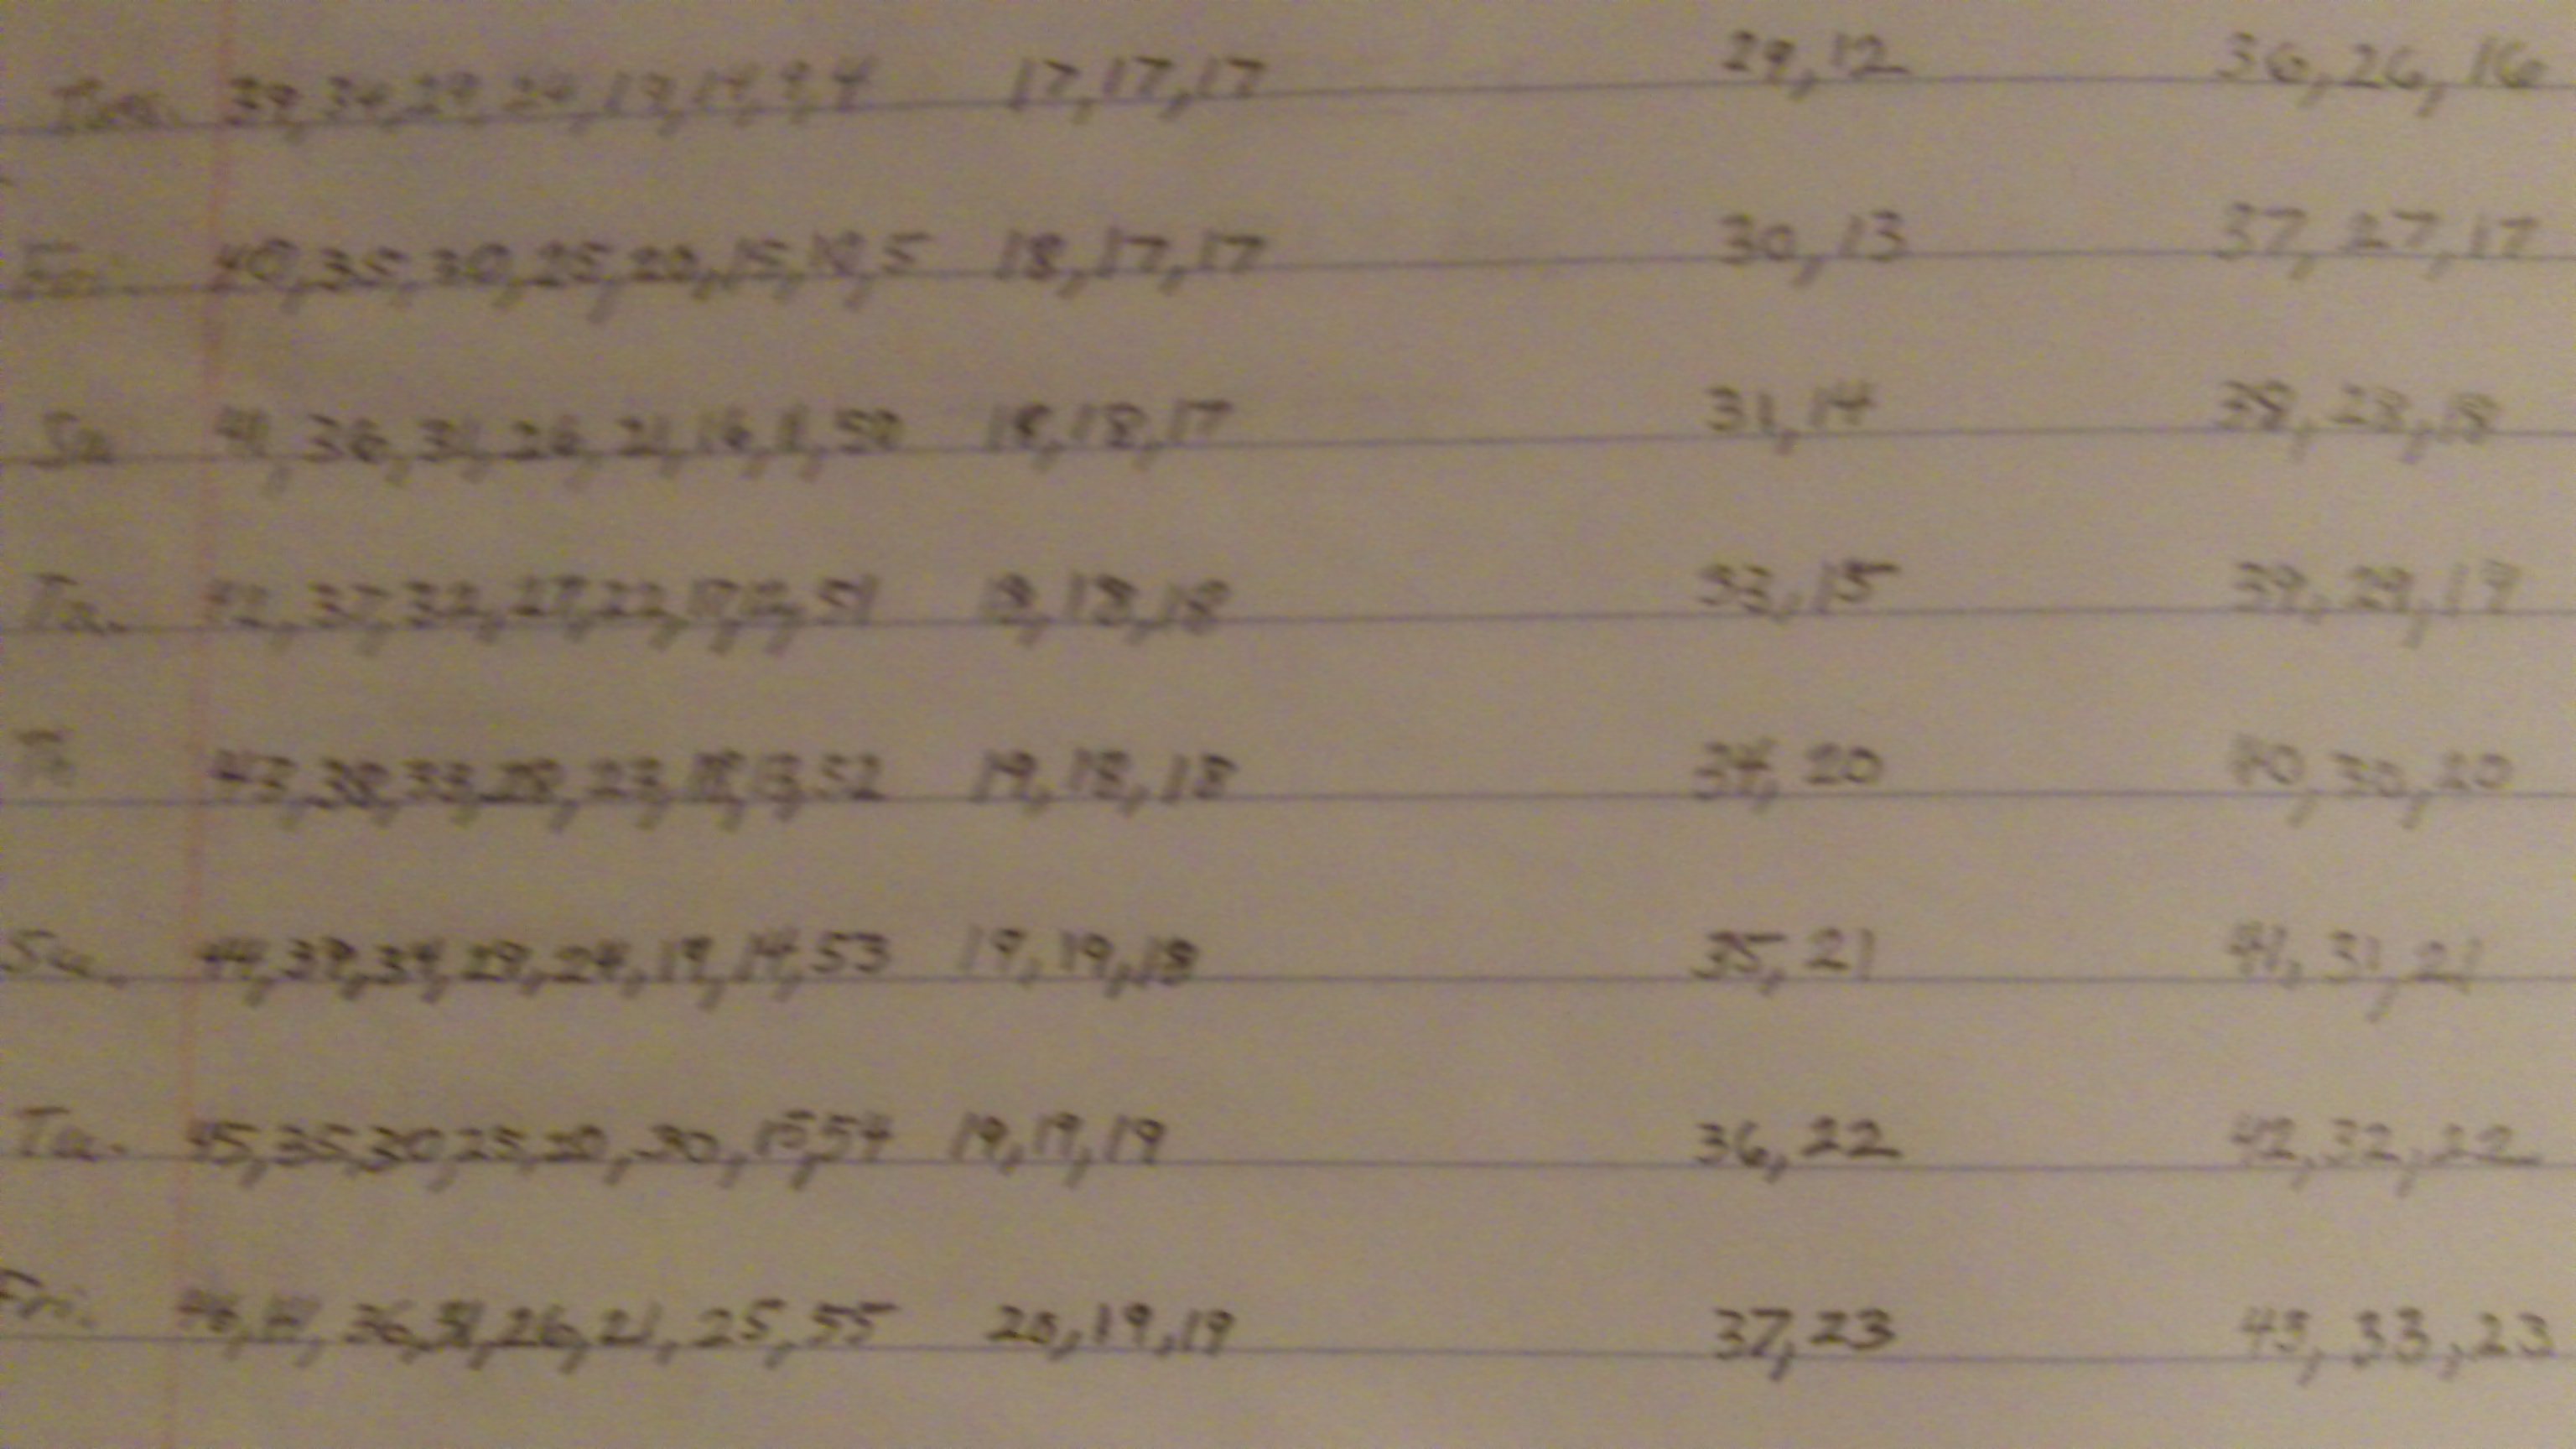 Tue. 39,34,29,24,19,14,9,4 17,17,17 29,12 36,26,16
Fri 40,35,30,25,20,15,10,5 18,17,17 30,13 37,27,17
Su 41,36,31,26,21,16,11,50 18,18,17 31,14 38,28,18
Tu. 42,37,32,27,22,17,12,51 18,18,18 33,15 39,29,19
43,38,33,28,23,18,13,52 19,18,18 34,20 40,30,20
Su. 44,39,34,29,24,19,14,53 19,19,18 35,21 41,31,21
Tu. 45,35,30,25,20,30,15,54 19,19,19 36,22 42,32,22
Fri. 46,41,36,31,26,21,25,55 20,19,19 37,23 43,33,23